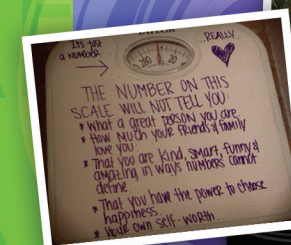 IT'S JUST
A NUMBER
REALLY
280 20
THE NUMBER ON THIS
SCALE WILL NOT TELL YOU:
* What a great person you are.
* How much your friends & family
love you.
* That you are kind, smart, funny &
amazing in ways numbers cannot
define.
* That you have the power to choose
happiness.
* Your own self-worth